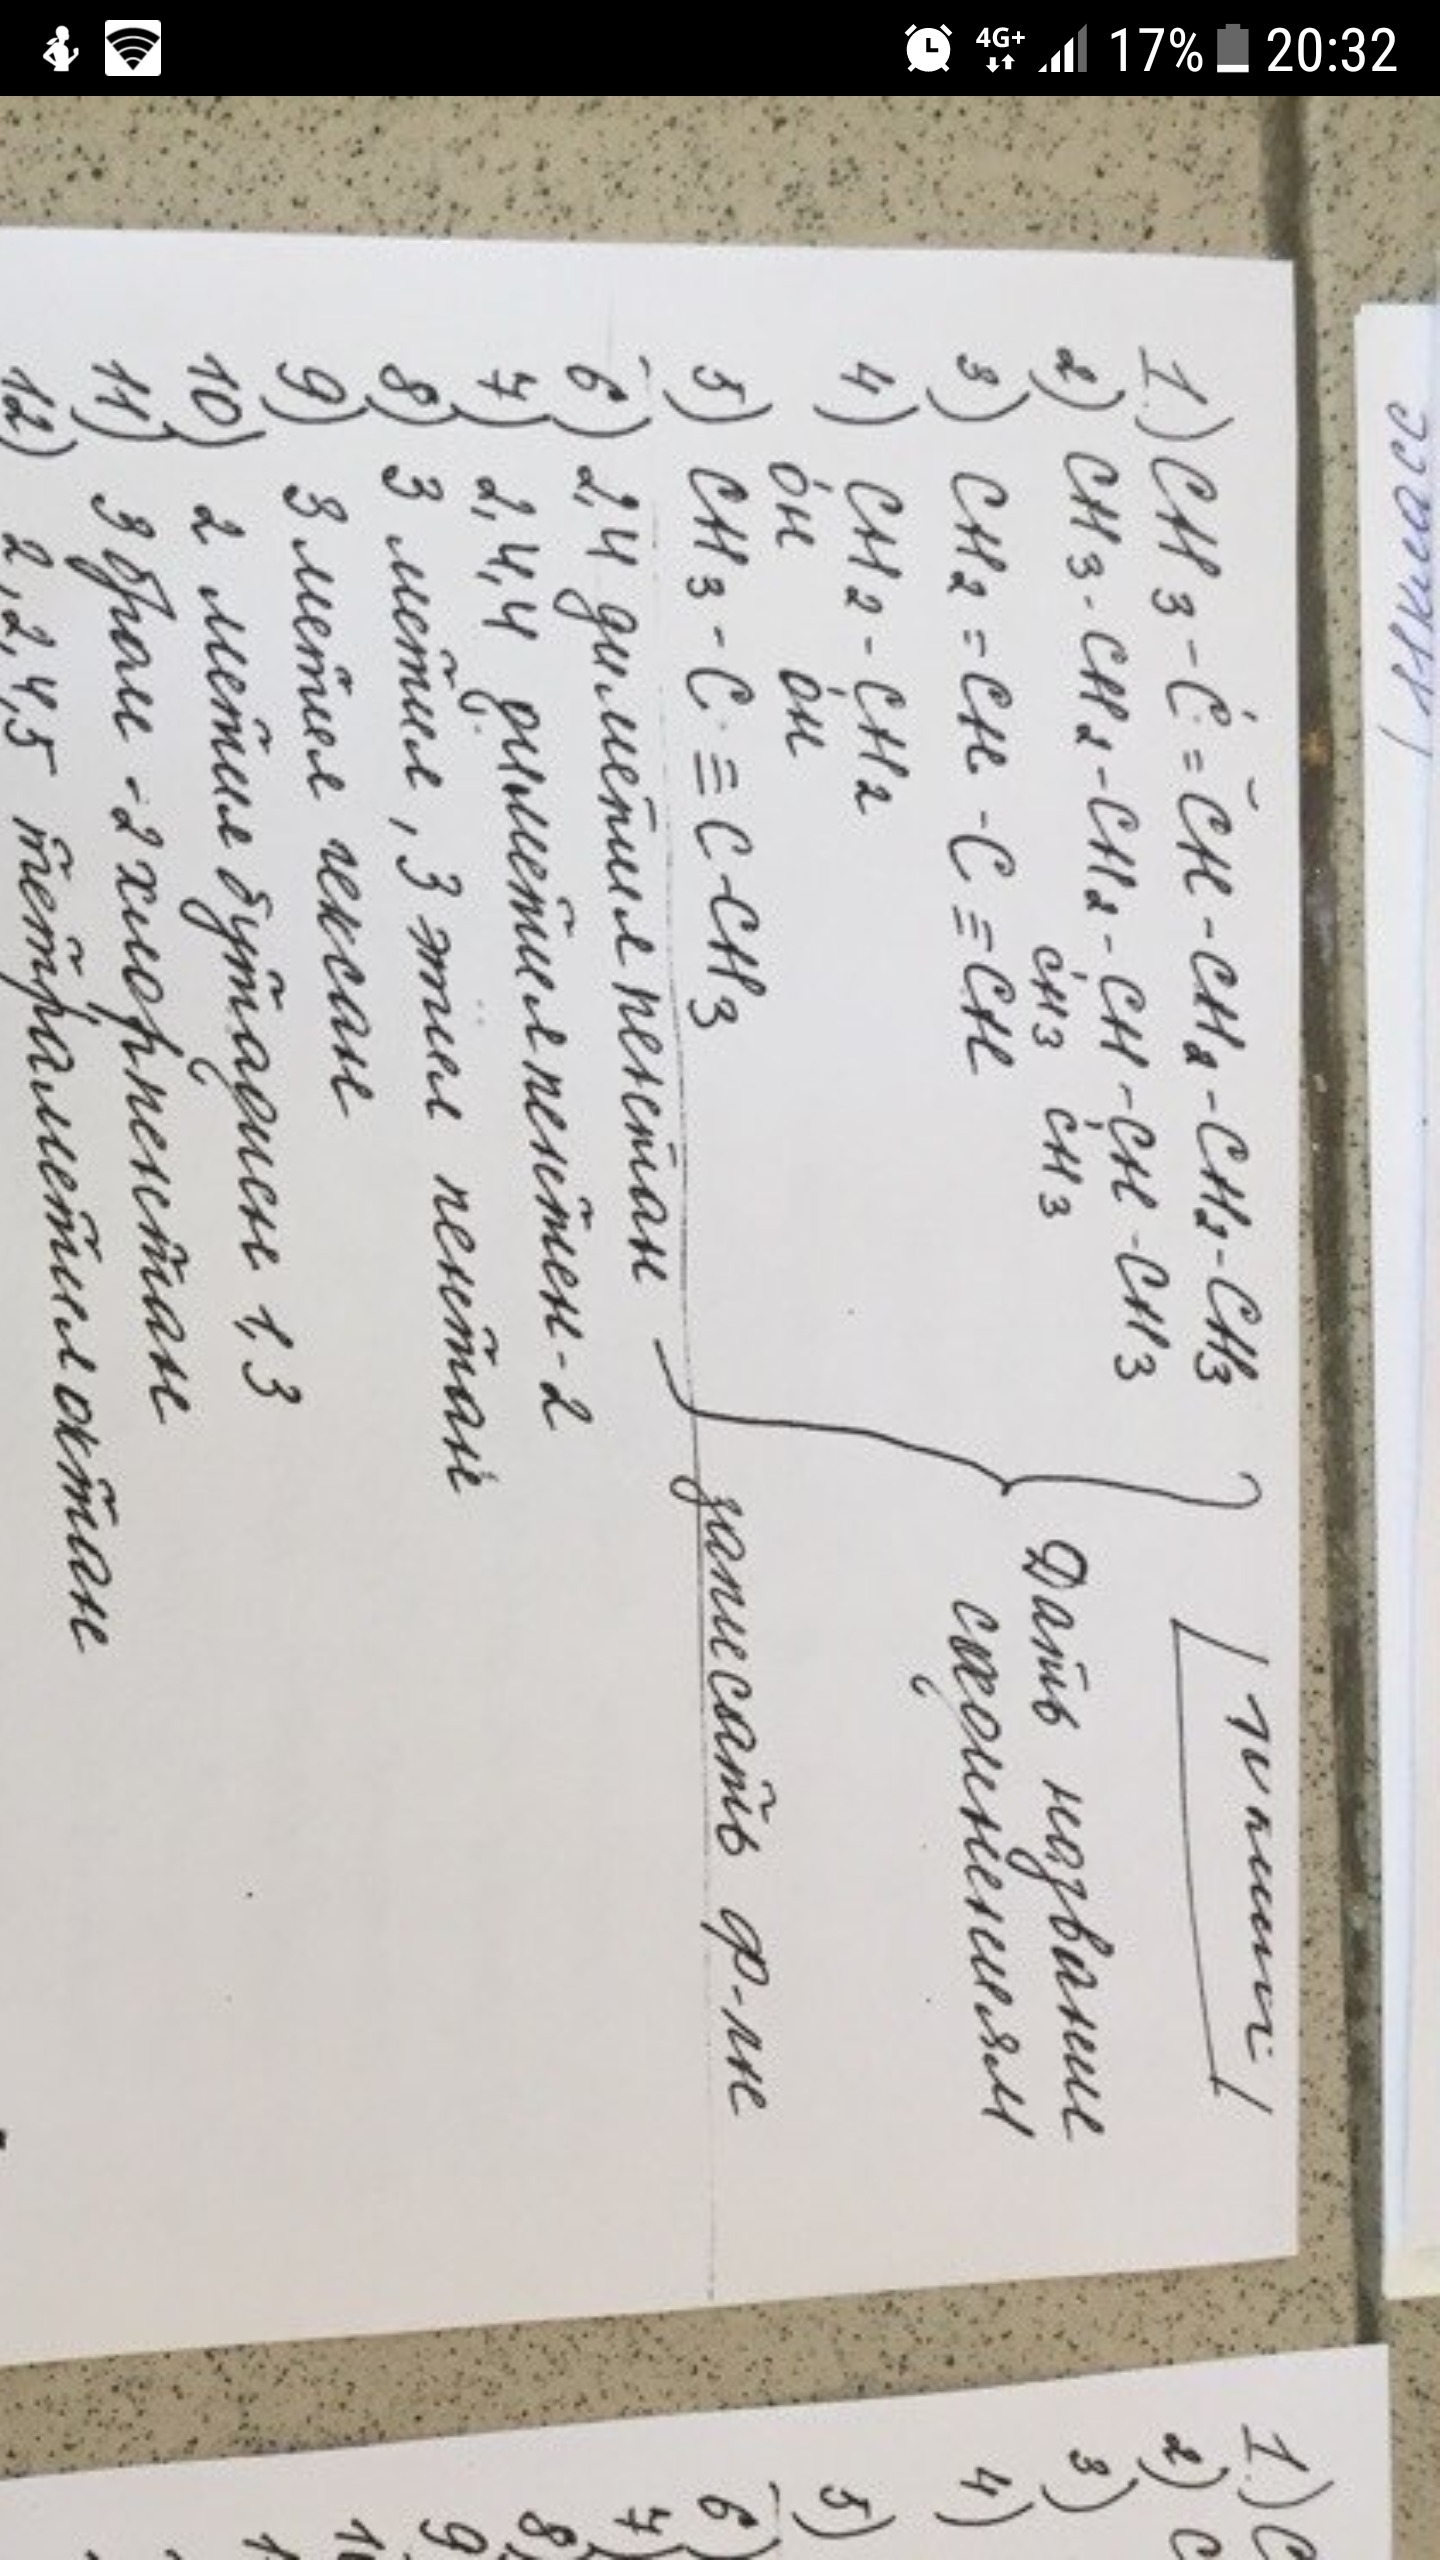 4G+ 17% 20:32
1.) CH3-C=CH-CH2-CH2-CH3
2) CH3-CH2-CH2-CH-CH-CH3
CH3 CH3
3) CH2=CH-C≡CH
4) CH2-CH2
OH OH
5) CH3-C≡C-CH3
Дать название
соединениям
записать ф-лы
6) 2,4 диметилпентан
7) 2,4,4 диметилпентен-2
8) 3 метил, 3 этил пентан
9) 3 метил гексан
10) 2 метил бутадиен 1,3
11) 3 бром -2 хлорпентан
12) 2,2,4,5 тетраметилоктан
1.) C
2) C
3)
4)
5)
6)
7)
8)
9